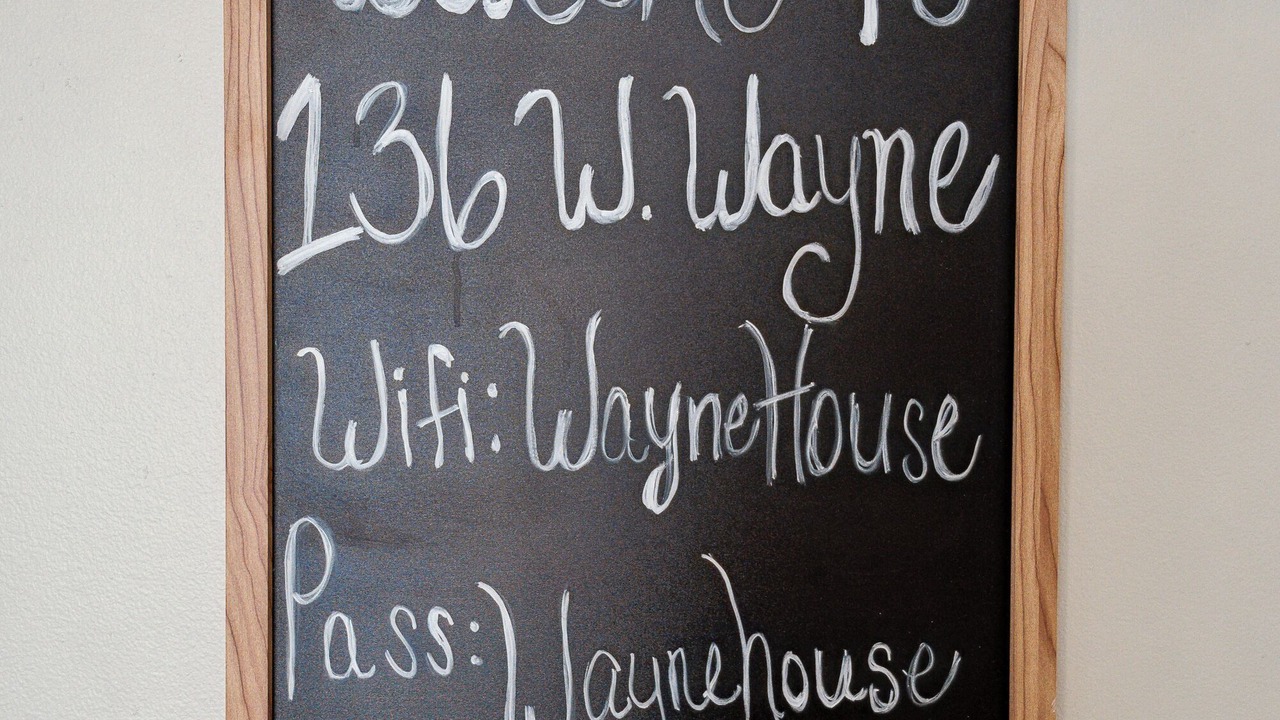 Welcome To
136 W. Wayne
Wifi: WayneHouse
Pass: Waynehouse